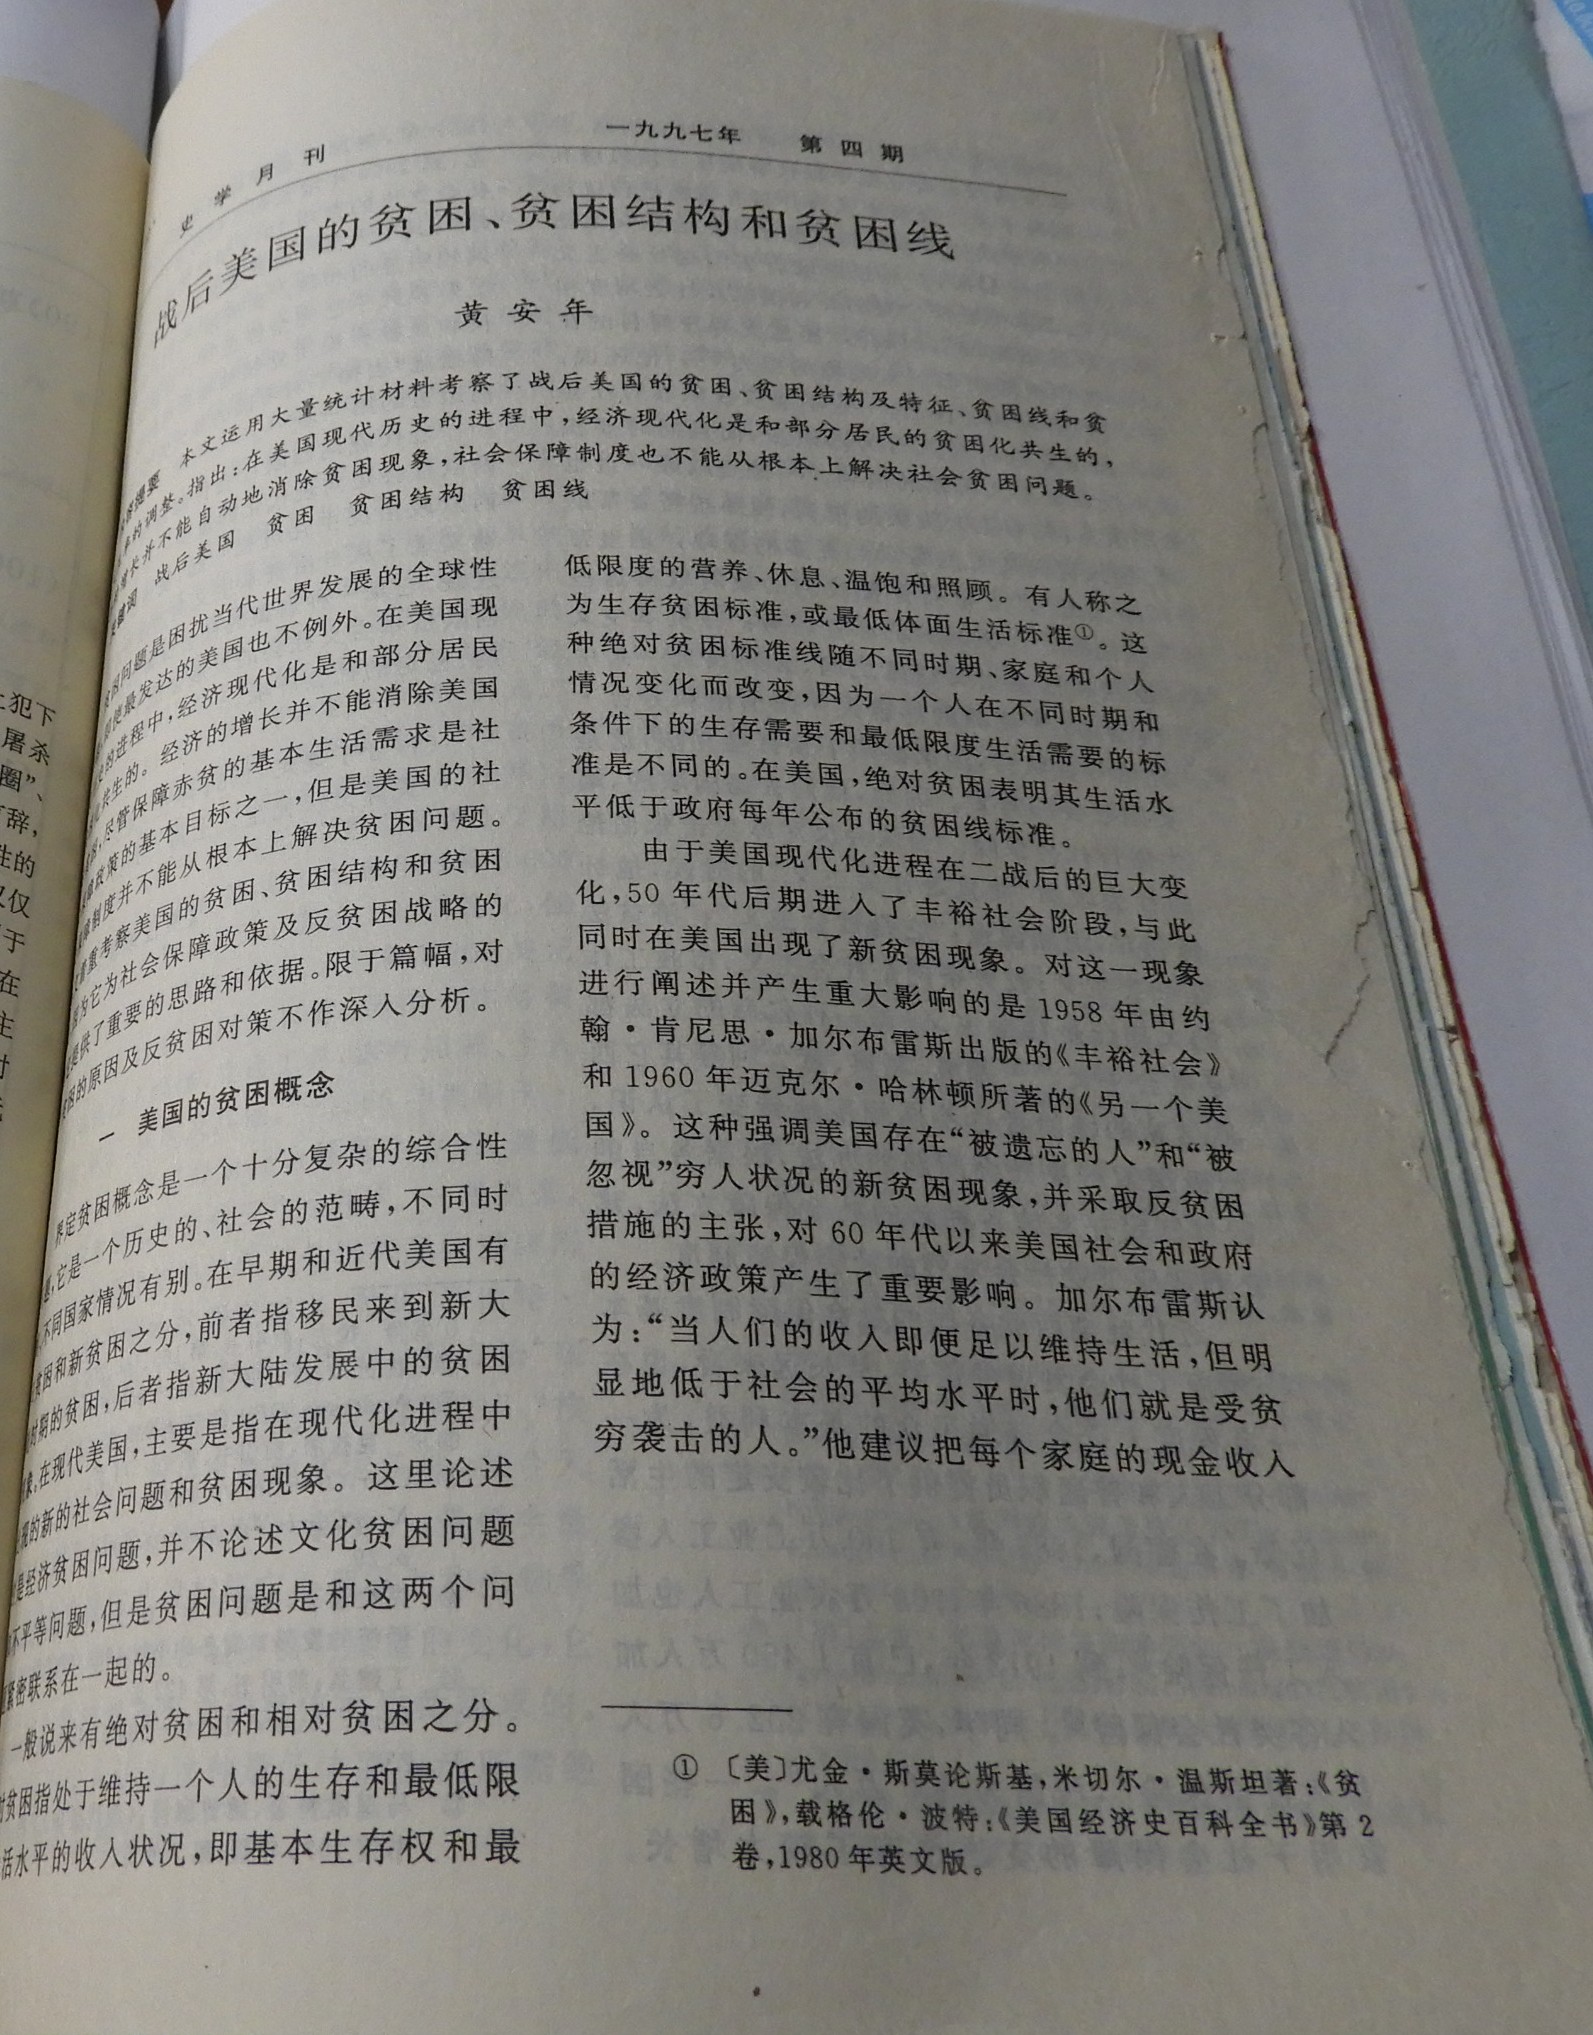 史学月刊
一九九七年 第四期
战后美国的贫困、贫困结构和贫困线
黄安年
提要 本文运用大量统计材料考察了战后美国的贫困、贫困结构及特征、贫困线和贫
的调整。指出:在美国现代历史的进程中,经济现代化是和部分居民的贫困化共生的,
增长并不能自动地消除贫困现象,社会保障制度也不能从根本上解决社会贫困问题。
键词 战后美国 贫困 贫困结构 贫困线
贫困问题是困扰当代世界发展的全球性
即使最发达的美国也不例外。在美国现
的进程中,经济现代化是和部分居民
共生的。经济的增长并不能消除美国
尽管保障赤贫的基本生活需求是社
政策的基本目标之一,但是美国的社
制度并不能从根本上解决贫困问题。
着重考察美国的贫困、贫困结构和贫困
因为它为社会保障政策及反贫困战略的
提供了重要的思路和依据。限于篇幅,对
贫困的原因及反贫困对策不作深入分析。
一 美国的贫困概念
界定贫困概念是一个十分复杂的综合性
题,它是一个历史的、社会的范畴,不同时
不同国家情况有别。在早期和近代美国有
贫困和新贫困之分,前者指移民来到新大
时期的贫困,后者指新大陆发展中的贫困
象。在现代美国,主要是指在现代化进程中
现的新的社会问题和贫困现象。这里论述
是经济贫困问题,并不论述文化贫困问题
不平等问题,但是贫困问题是和这两个问
紧密联系在一起的。
一般说来有绝对贫困和相对贫困之分。
对贫困指处于维持一个人的生存和最低限
活水平的收入状况,即基本生存权和最
低限度的营养、休息、温饱和照顾。有人称之
为生存贫困标准,或最低体面生活标准①。这
种绝对贫困标准线随不同时期、家庭和个人
情况变化而改变,因为一个人在不同时期和
条件下的生存需要和最低限度生活需要的标
准是不同的。在美国,绝对贫困表明其生活水
平低于政府每年公布的贫困线标准。
由于美国现代化进程在二战后的巨大变
化,50年代后期进入了丰裕社会阶段,与此
同时在美国出现了新贫困现象。对这一现象
进行阐述并产生重大影响的是1958年由约
翰·肯尼思·加尔布雷斯出版的《丰裕社会》
和1960年迈克尔·哈林顿所著的《另一个美
国》。这种强调美国存在“被遗忘的人”和“被
忽视”穷人状况的新贫困现象,并采取反贫困
措施的主张,对60年代以来美国社会和政府
的经济政策产生了重要影响。加尔布雷斯认
为:“当人们的收入即便足以维持生活,但明
显地低于社会的平均水平时,他们就是受贫
穷袭击的人。”他建议把每个家庭的现金收入
① 〔美〕尤金·斯莫论斯基,米切尔·温斯坦著:《贫
困》,载格伦·波特:《美国经济史百科全书》第2
卷,1980年英文版。
犯下
屠杀
圈”、
辞,
性的
仅
于
在
主